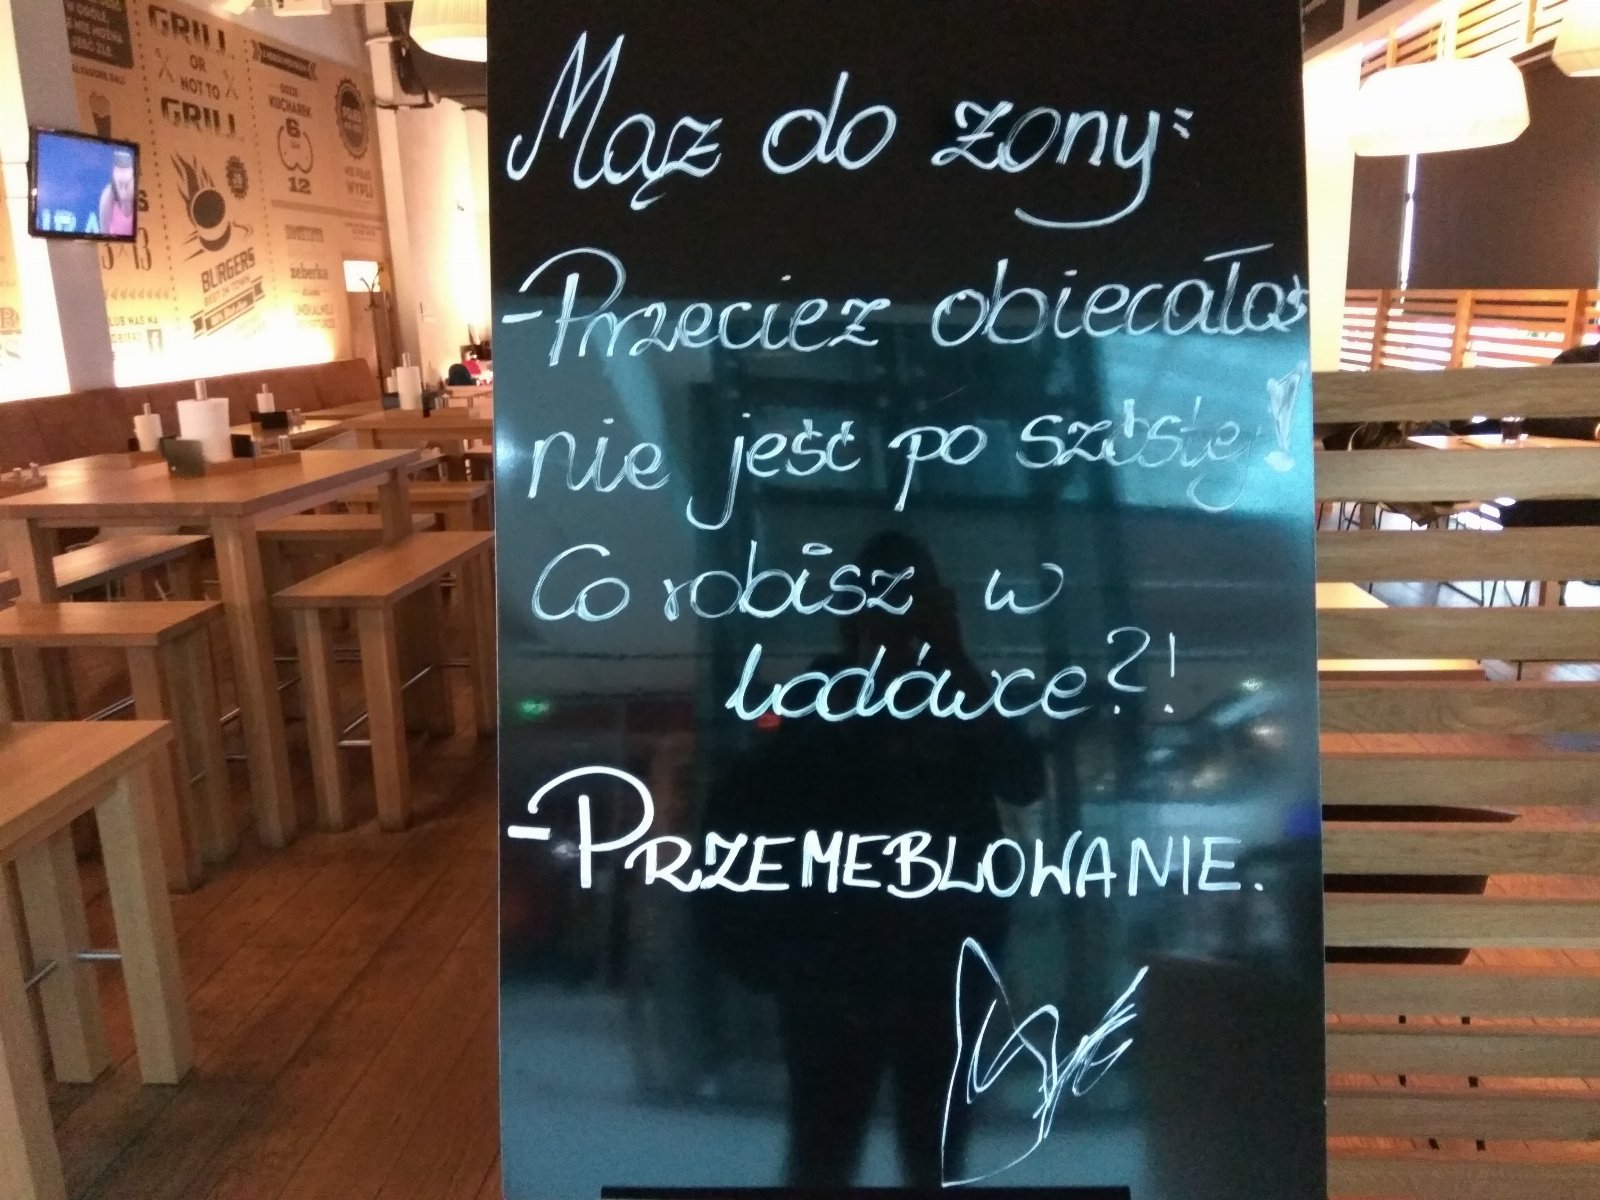 GRILL
OR
NOT TO
GRILL
KUCHAREK
6
12
WYPIJ
BURGERS
BEST IN TOWN
żeberka
Mąż do żony:
-Przecież obiecałaś
nie jeść po szóstej!
Co robisz w
lodówce?!
-PRZEMEBLOWANIE.